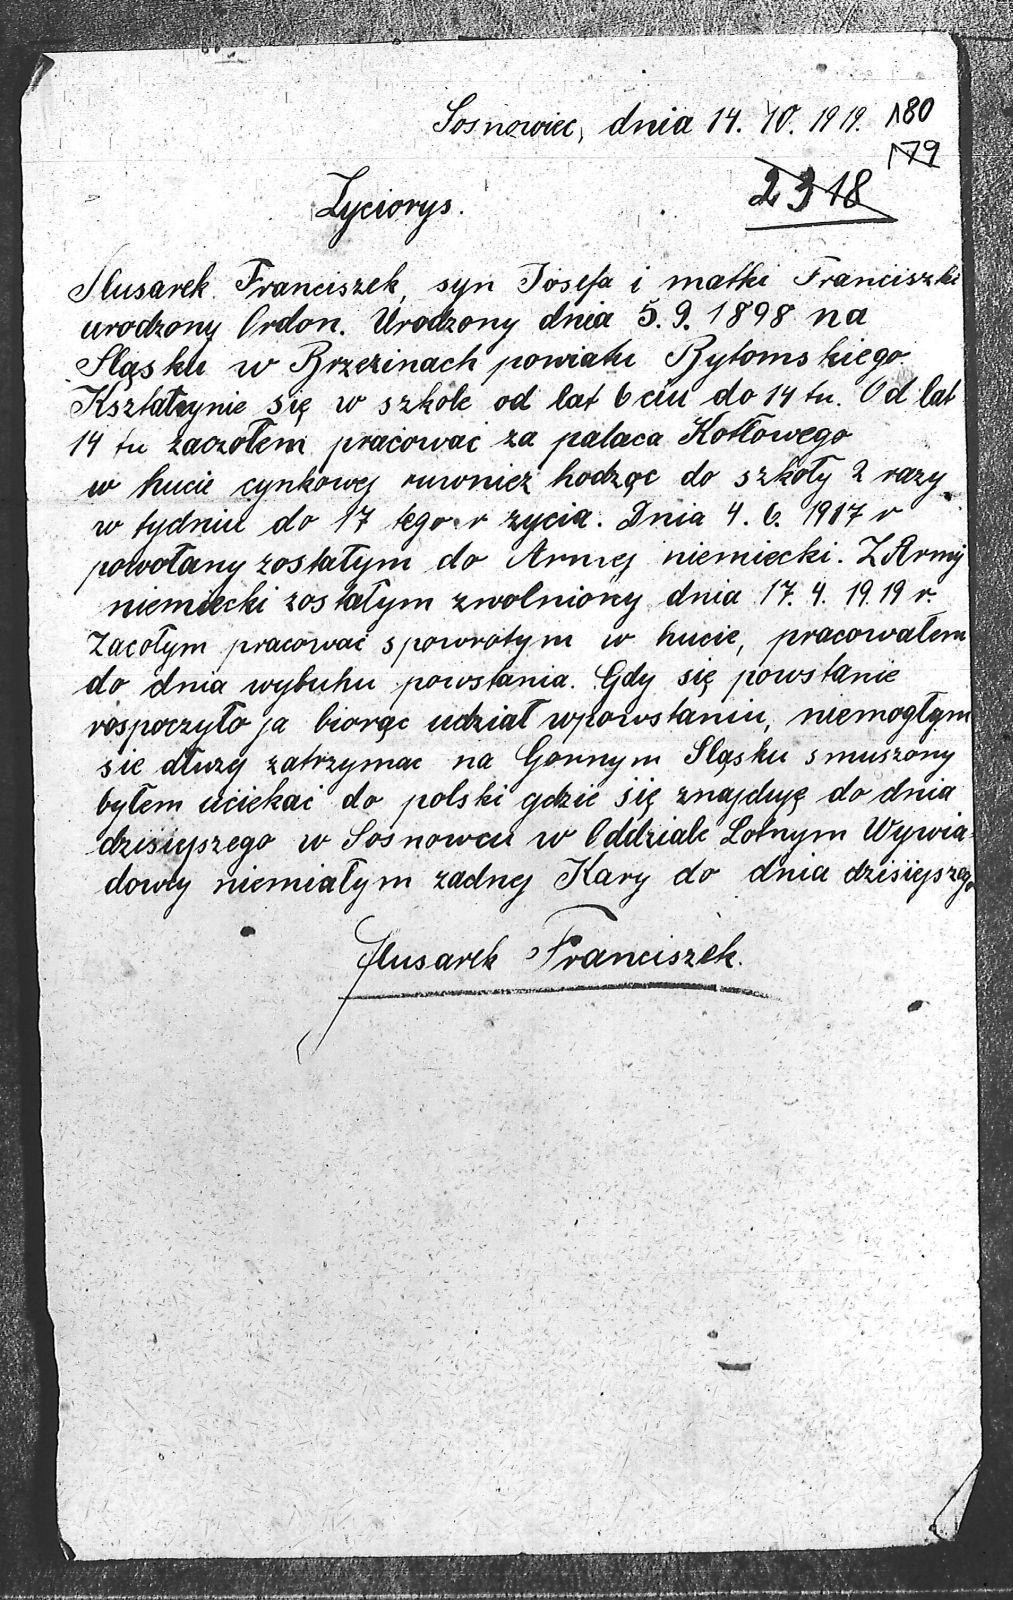 Sosnowiec, dnia 14. 10. 1919. 180
179
2318
Życiorys.
Slusarek Franciszek, syn Josefa i matki Franciszki
urodzony Ordon. Urodzony dnia 5. 9. 1898 na
Sląsku w Brzezinach powiatu Bytomskiego
się w szkole od lat 6 ciu do 14 tu. Od lat
14 tu zaczołem pracować za palaca Kotłowego
w hucie cynkowej ruwnież hodząc do szkoły 2 razy
w tydniu do 17 tego r życia. Dnia 4. 6. 1917 r
powołany zostałym do Armej niemiecki. Z Armij
niemiecki zostałym zwolniony dnia 17. 4. 1919 r.
Zacołym pracować spowrotym w hucie, pracowałem
do dnia wybuhu powstania. Gdy się powstanie
rospoczyło ja biorąc udział wpowstaniu, niemogłym
sie dłuzy zatrzymac na Gornym Sląsku smuszony
byłem uciekać do polski gdzie się znajduję do dnia
dzisiyszego w Sosnowcu w Oddziale Lotnym Wywia-
dowcy niemiałym zadnej Kary do dnia dzisiejszego
Slusarek Franciszek.